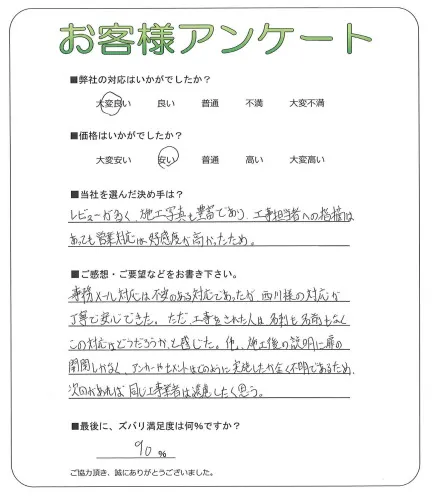 お客様アンケート
■弊社の対応はいかがでしたか？
大変良い　良い　普通　不満　大変不満
■価格はいかがでしたか？
大変安い　安い　普通　高い　大変高い
■当社を選んだ決め手は？
レビューが多く、施工写真も豊富であり、工事担当者への指摘は
あっても営業対応は好感度が高かったため。
■ご感想・ご要望などをお書き下さい。
事務メール対応は不安のある対応であったが 西川様の対応が
丁寧で安心できた。ただ工事をされた人は名刺も名前もなく
この対応はどうだろうかと感じた。他、施工後の説明に扉の
開閉しかなく、アンカーやセメントはどのように実施したか全く不明であるため、
次回があれば同じ工事業者は遠慮したく思う。
■最後に、ズバリ満足度は何%ですか？
90 %
ご協力頂き、誠にありがとうございました。